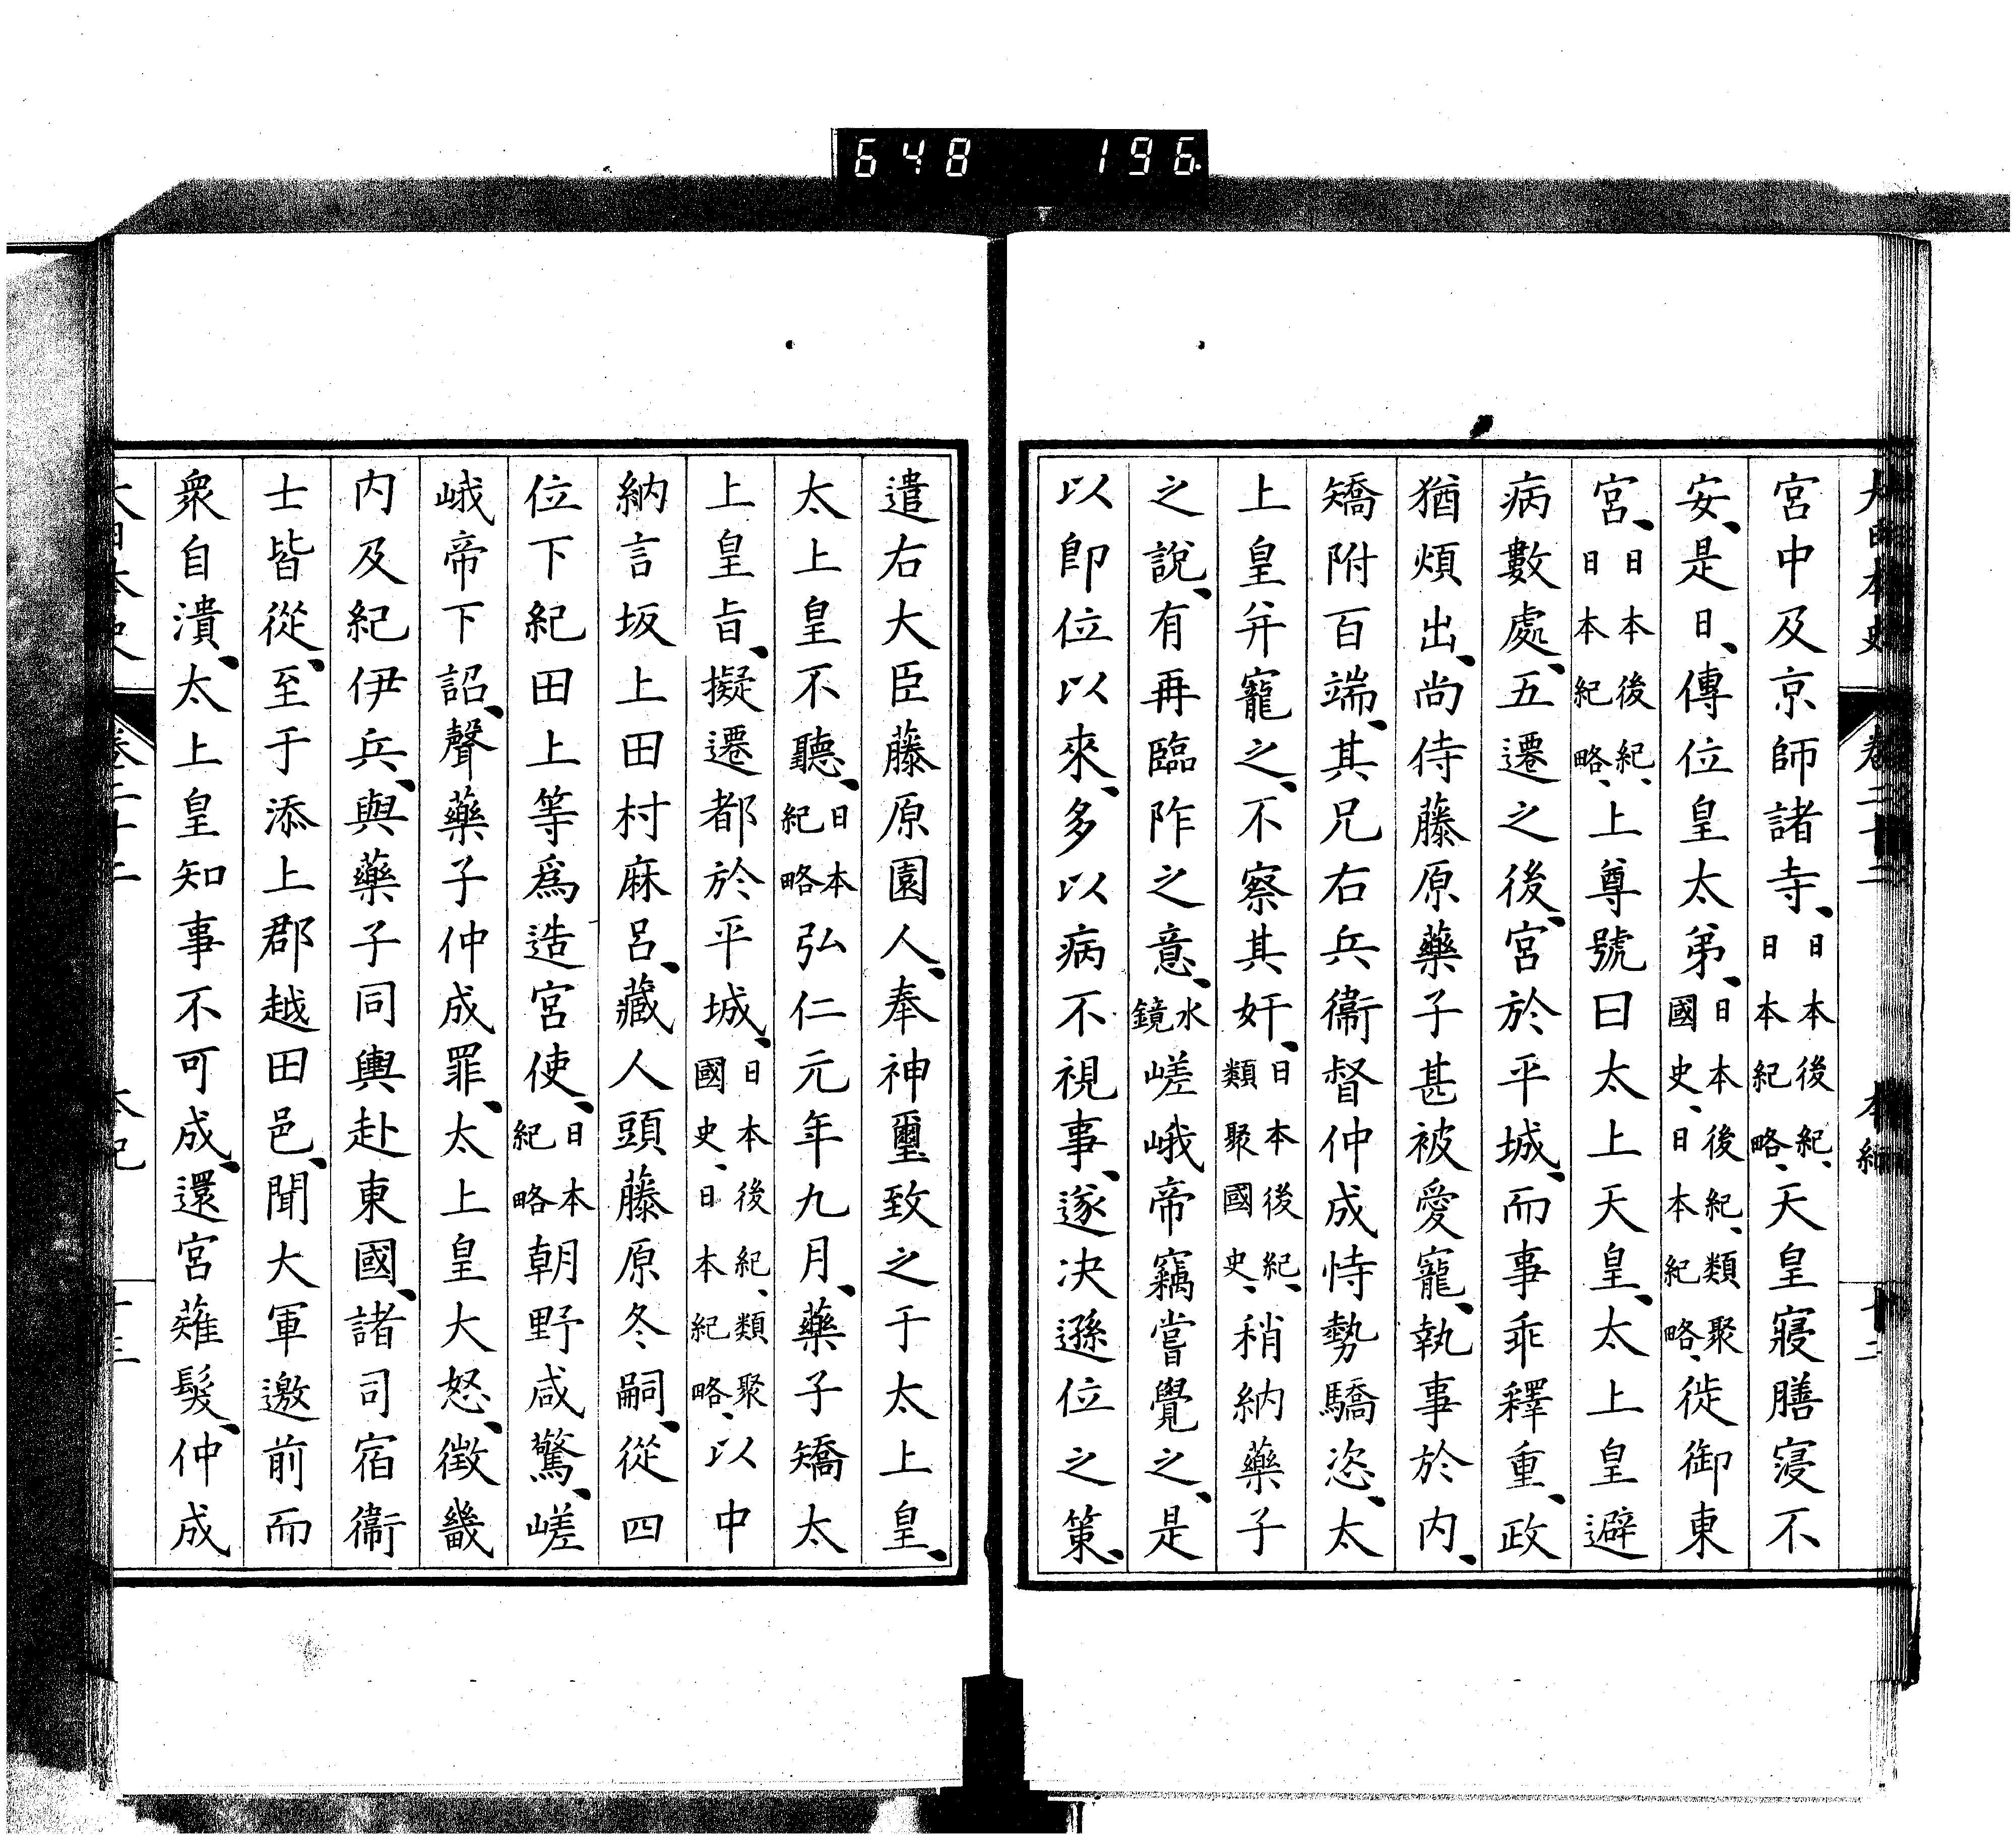 648 196
大日本史 卷二十二 本紀 十二
宮中及京師諸寺、日本後紀、日本紀略、天皇寢膳寖不
安、是日、傳位皇太弟、日本後紀、類聚國史、日本紀略、徙御東
宮、日本後紀、日本紀略、上尊號曰太上天皇、太上皇避
病數處、五遷之後、宮於平城、而事乖釋重、政
猶煩出、尚侍藤原藥子甚被愛寵、執事於内、
矯附百端、其兄右兵衞督仲成恃勢驕恣、太
上皇幷寵之、不察其奸、日本後紀、類聚國史、稍納藥子
之說、有再臨阼之意、水鏡嵯峨帝竊嘗覺之、是
以卽位以來、多以病不視事、遂决遜位之策、
遣右大臣藤原園人、奉神璽致之于太上皇、
太上皇不聽、日本紀略弘仁元年九月、藥子矯太
上皇旨、擬遷都於平城、日本後紀、類聚國史、日本紀略、以中
納言坂上田村麻呂、藏人頭藤原冬嗣、從四
位下紀田上等爲造宮使、日本紀略朝野咸驚、嵯
峨帝下詔、聲藥子仲成罪、太上皇大怒、徵畿
内及紀伊兵、與藥子同輿赴東國、諸司宿衞
士皆從、至于添上郡越田邑、聞大軍邀前而
衆自潰、太上皇知事不可成、還宮薙髮、仲成
大日本史 卷二十二 本紀 十三